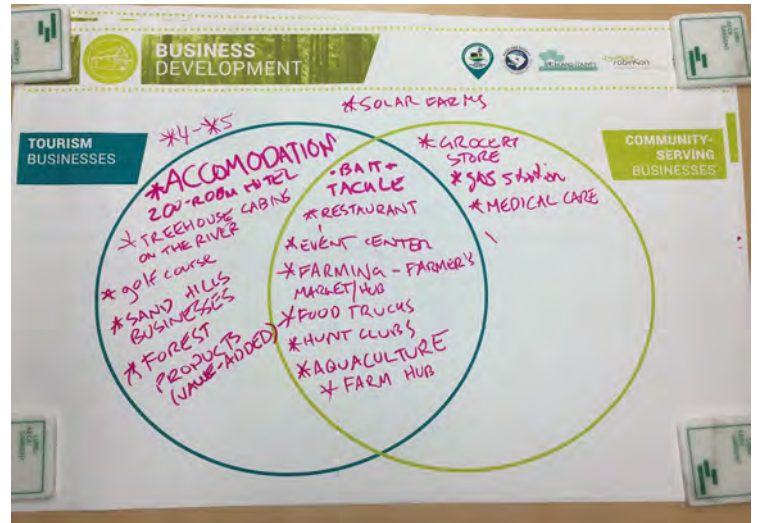 BUSINESS
DEVELOPMENT
*SOLAR FARMS
TOURISM
BUSINESSES
COMMUNITY-
SERVING
BUSINESSES
*4-*5
*ACCOMODATION
200-ROOM HOTEL
*TREEHOUSE CABINS
ON THE RIVER
*golf course
*SAND HILLS
BUSINESSES
*FOREST
PRODUCTS
(VALUE-ADDED)
•BAIT +
TACKLE
*RESTAURANT
*EVENT CENTER
*FARMING - FARMER'S
MARKET/HUB
*FOOD TRUCKS
*HUNT CLUBS
*AQUACULTURE
*FARM HUB
*GROCERY
STORE
*gas station
*MEDICAL CARE